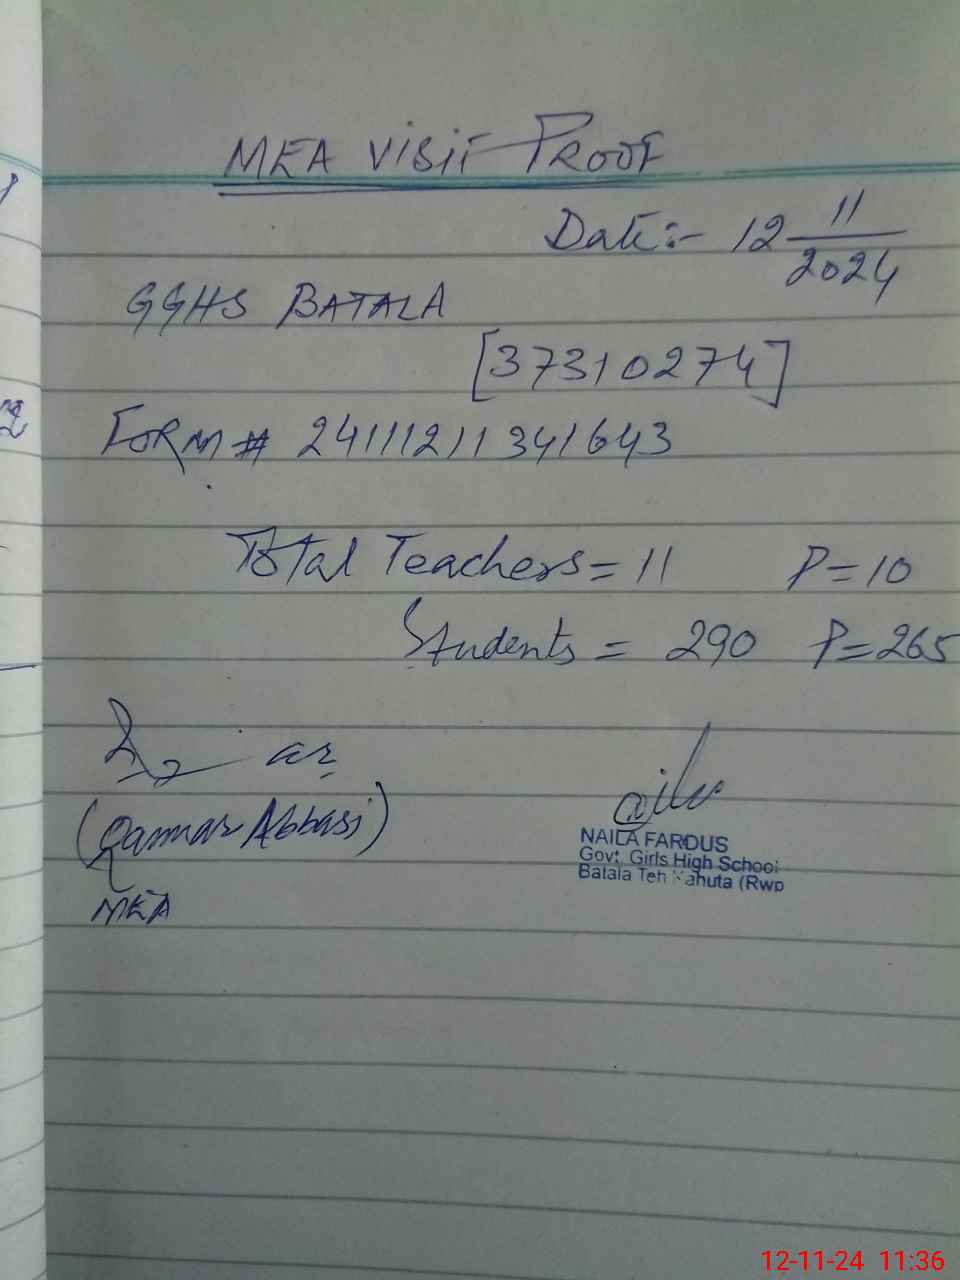 MEA VISIT PROOF
Date:- 12 11/2024
GGHS BATALA
[37310274]
FORM # 24111211341643
Total Teachers = 11 P=10
Students = 290 P=265
(Qammar Abbasi)
MEA
NAILA FARDUS
Govt. Girls High School
Batala Teh Kahuta (Rwp
12-11-24 11:36